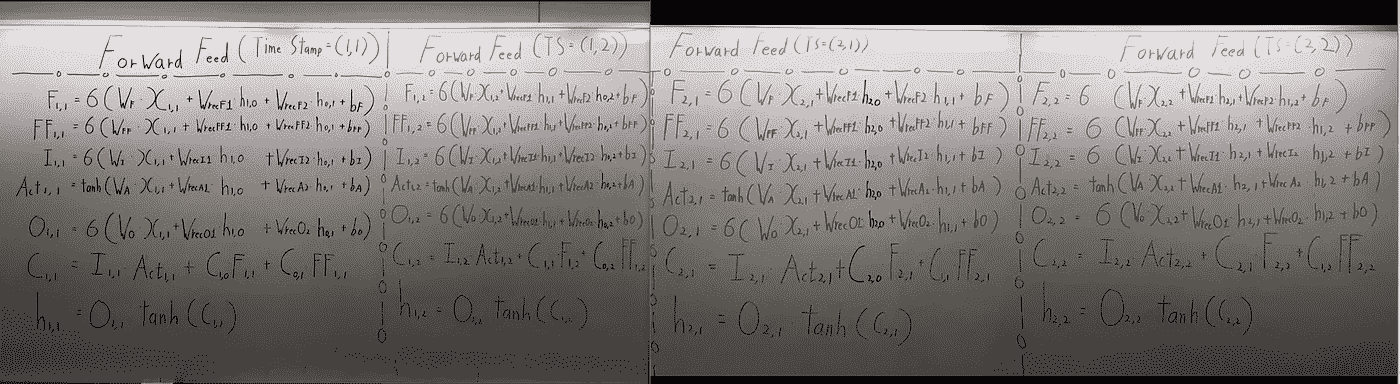 Forward Feed (Time Stamp = (1,1))
F1,1 = 6(WF·X1,1 + WrecF1·h1,0 + WrecF2·h0,1 + bF)
FF1,1 = 6(WFF·X1,1 + WrecFF1·h1,0 + WrecFF2·h0,1 + bFF)
I1,1 = 6(WI·X1,1 + WrecI1·h1,0 + WrecI2·h0,1 + bI)
Act1,1 = tanh(WA·X1,1 + WrecA1·h1,0 + WrecA2·h0,1 + bA)
O1,1 = 6(WO·X1,1 + WrecO1·h1,0 + WrecO2·h0,1 + bO)
C1,1 = I1,1 Act1,1 + C1,0 F1,1 + C0,1 FF1,1
h1,1 = O1,1 tanh(C1,1)
Forward Feed (TS = (1,2))
F1,2 = 6(WF·X1,2 + WrecF1·h1,1 + WrecF2·h0,2 + bF)
FF1,2 = 6(WFF·X1,2 + WrecFF1·h1,1 + WrecFF2·h0,2 + bFF)
I1,2 = 6(WI·X1,2 + WrecI1·h1,1 + WrecI2·h0,2 + bI)
Act1,2 = tanh(WA·X1,2 + WrecA1·h1,1 + WrecA2·h0,2 + bA)
O1,2 = 6(WO·X1,2 + WrecO1·h1,1 + WrecO2·h0,2 + bO)
C1,2 = I1,2 Act1,2 + C1,1 F1,2 + C0,2 FF1,2
h1,2 = O1,2 tanh(C1,2)
Forward Feed (TS = (2,1))
F2,1 = 6(WF·X2,1 + WrecF1·h2,0 + WrecF2·h1,1 + bF)
FF2,1 = 6(WFF·X2,1 + WrecFF1·h2,0 + WrecFF2·h1,1 + bFF)
I2,1 = 6(WI·X2,1 + WrecI1·h2,0 + WrecI2·h1,1 + bI)
Act2,1 = tanh(WA·X2,1 + WrecA1·h2,0 + WrecA2·h1,1 + bA)
O2,1 = 6(WO·X2,1 + WrecO1·h2,0 + WrecO2·h1,1 + bO)
C2,1 = I2,1 Act2,1 + C2,0 F2,1 + C1,1 FF2,1
h2,1 = O2,1 tanh(C2,1)
Forward Feed (TS = (2,2))
F2,2 = 6 (WF·X2,2 + WrecF1·h2,1 + WrecF2·h1,2 + bF)
FF2,2 = 6 (WFF·X2,2 + WrecFF1·h2,1 + WrecFF2·h1,2 + bFF)
I2,2 = 6 (WI·X2,2 + WrecI1·h2,1 + WrecI2·h1,2 + bI)
Act2,2 = tanh(WA·X2,2 + WrecA1·h2,1 + WrecA2·h1,2 + bA)
O2,2 = 6(WO·X2,2 + WrecO1·h2,1 + WrecO2·h1,2 + bO)
C2,2 = I2,2 Act2,2 + C2,1 F2,2 + C1,2 FF2,2
h2,2 = O2,2 tanh(C2,2)